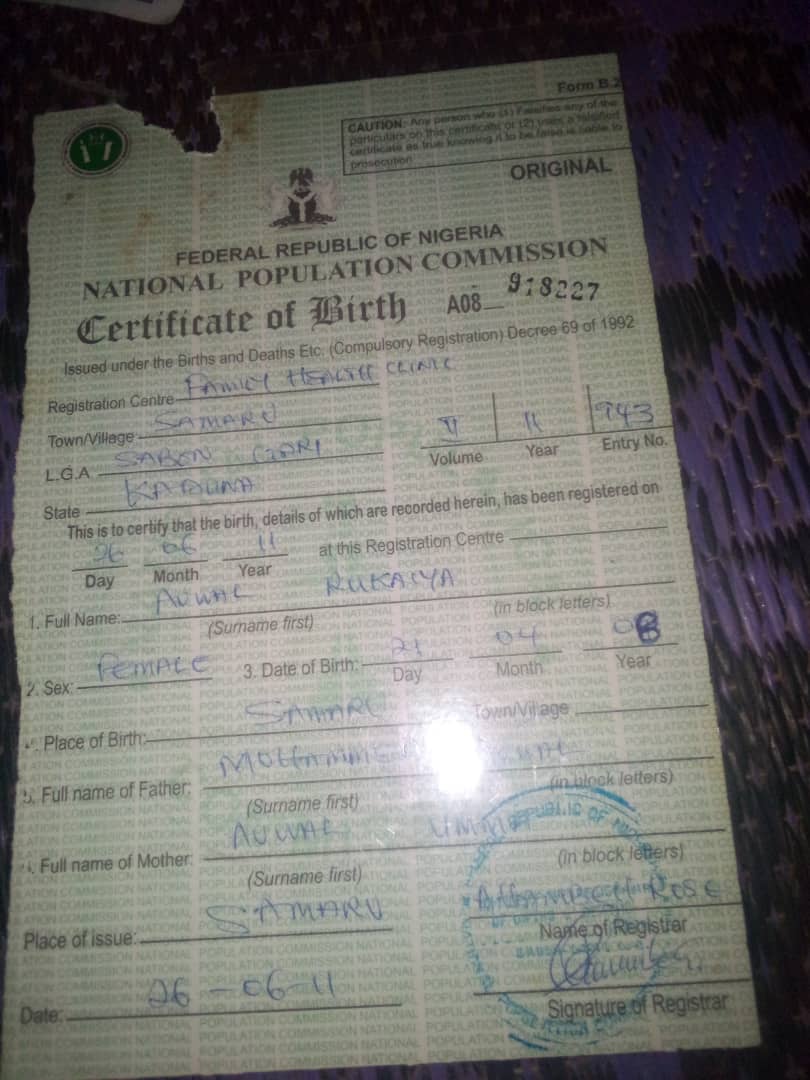 Form B.2
CAUTION: Any person who (1) Falsifies any of the
particulars on this certificate or (2) uses a falsified
certificate as true knowing it to be false is liable to
prosecution
ORIGINAL
FEDERAL REPUBLIC OF NIGERIA
NATIONAL POPULATION COMMISSION
Certificate of Birth A08 918227
Issued under the Births and Deaths Etc. (Compulsory Registration) Decree 69 of 1992
Registration Centre FAMILY HEALTH CLINIC
Town/Village: SAMARU
L.G.A SABON GARI
II 11 943
Volume Year Entry No.
State KADUNA
This is to certify that the birth, details of which are recorded herein, has been registered on
26 06 11 at this Registration Centre
Day Month Year
1. Full Name: AUWAL RUKAIYA
(Surname first) (in block letters)
2. Sex: FEMALE 3. Date of Birth: 21 04 08
Day Month Year
Place of Birth: SAMARU Town/Village
5. Full name of Father:
(Surname first) (in block letters)
Full name of Mother: AUWAL UMMA
(Surname first) (in block letters)
Place of issue: SAMARU
ROSE
Name of Registrar
Date: 26-06-11
Signature of Registrar